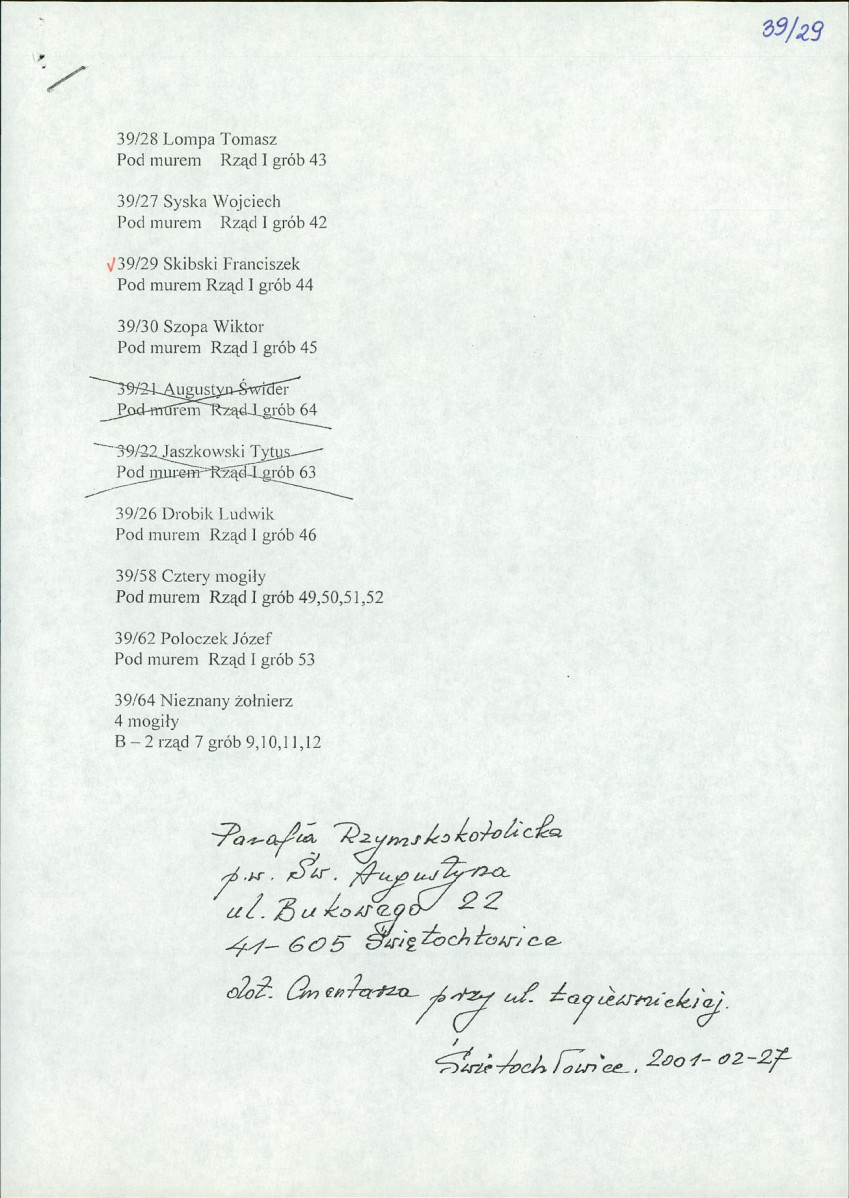 39/29
39/28 Lompa Tomasz
Pod murem Rząd I grób 43
39/27 Syska Wojciech
Pod murem Rząd I grób 42
√39/29 Skibski Franciszek
Pod murem Rząd I grób 44
39/30 Szopa Wiktor
Pod murem Rząd I grób 45
39/21 Augustyn Świder
Pod murem Rząd I grób 64
39/22 Jaszkowski Tytus
Pod murem Rząd I grób 63
39/26 Drobik Ludwik
Pod murem Rząd I grób 46
39/58 Cztery mogiły
Pod murem Rząd I grób 49,50,51,52
39/62 Poloczek Józef
Pod murem Rząd I grób 53
39/64 Nieznany żołnierz
4 mogiły
B – 2 rząd 7 grób 9,10,11,12
Parafia Rzymskokotolicka
p.w. Św. Augustyna
ul. Bukowego 22
41-605 Świętochłowice
dot. Cmentarza przy ul. Łagiewnickiej.
Świętochłowice, 2001-02-27